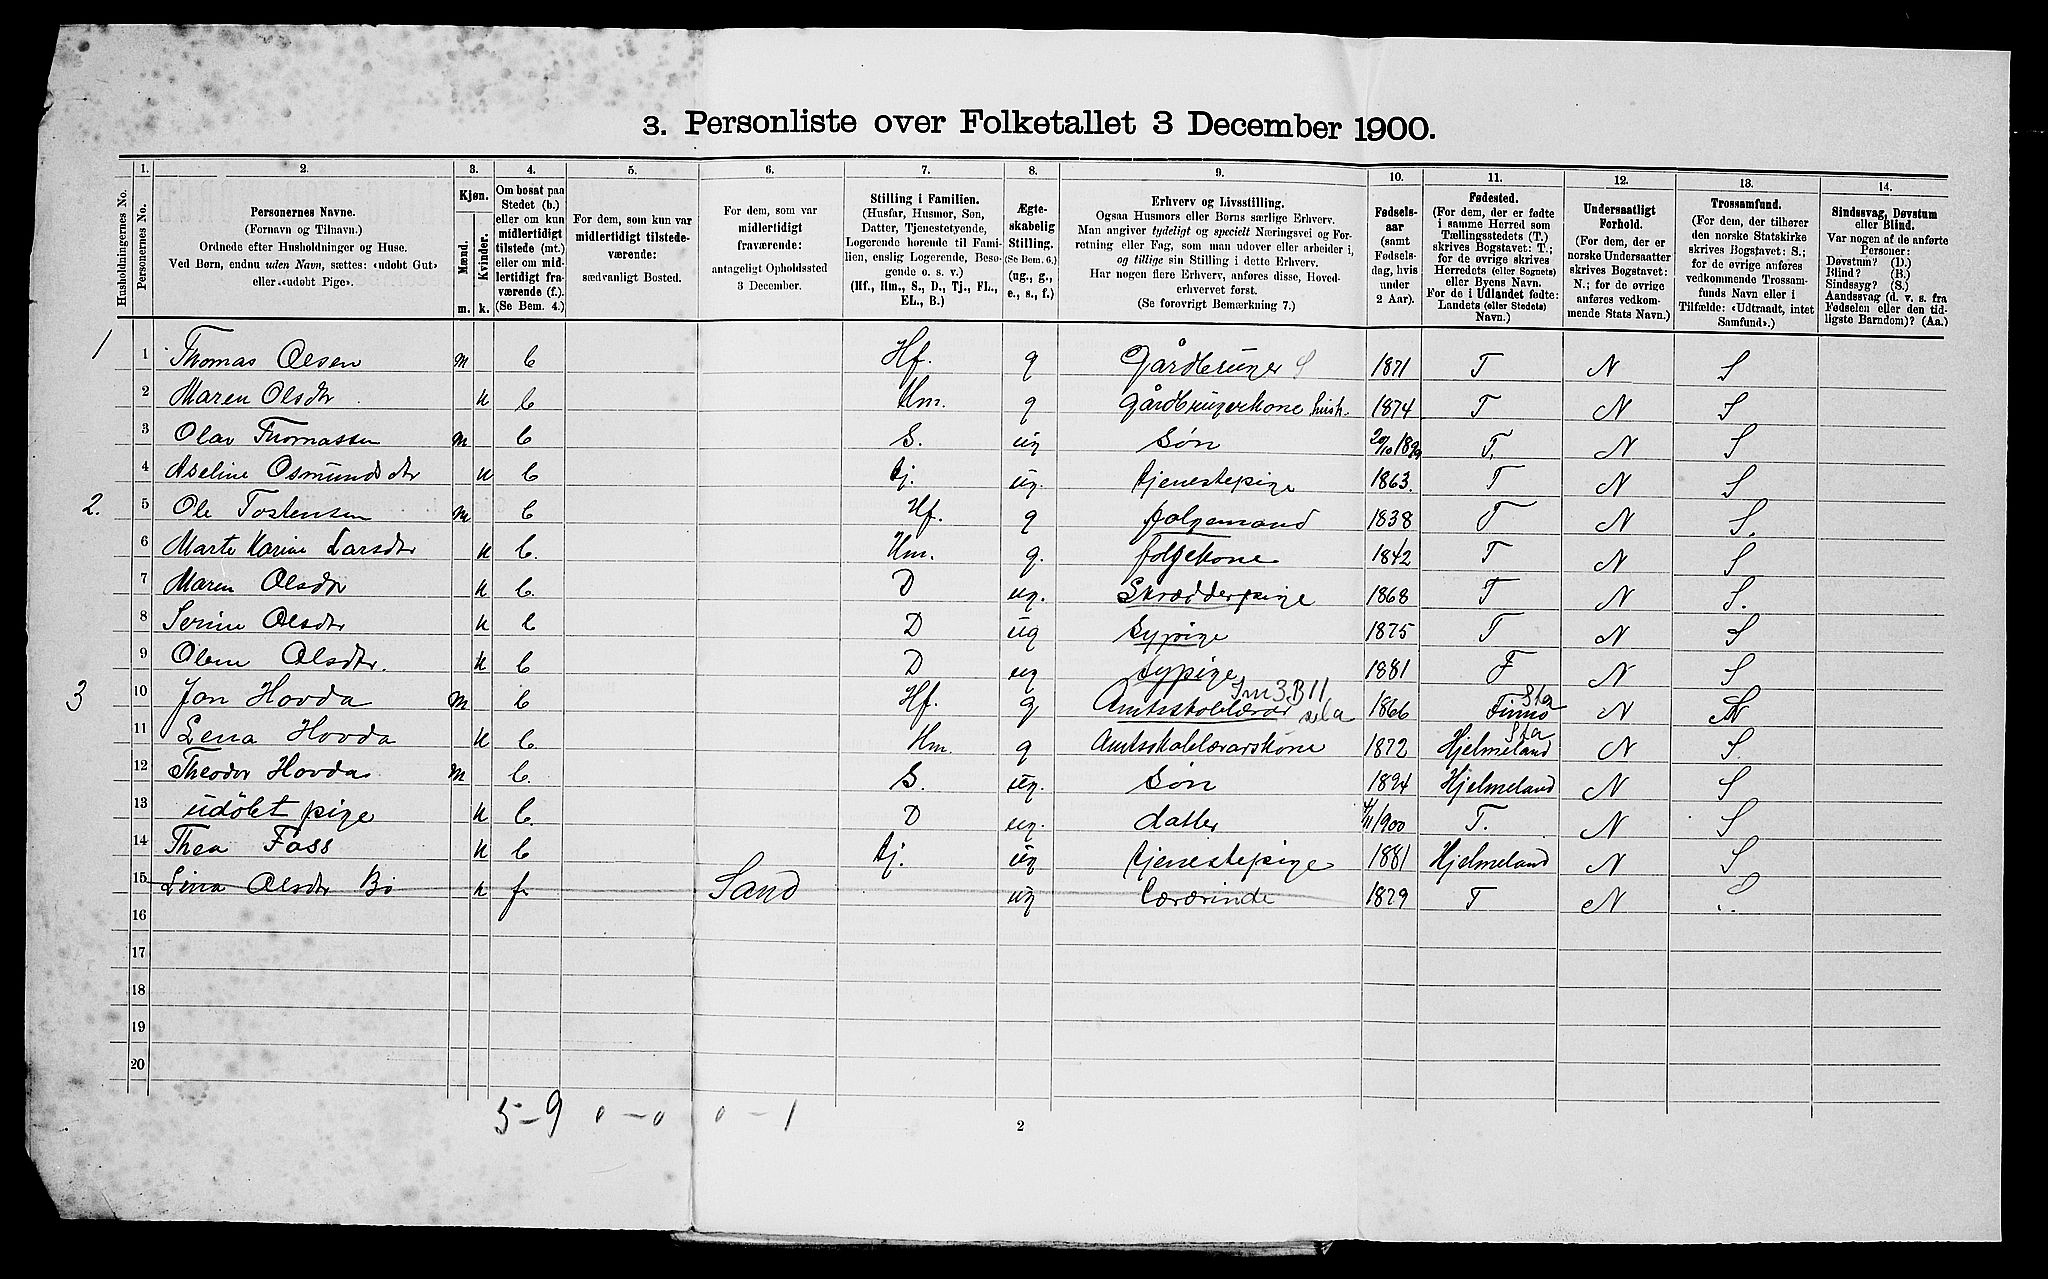 3. Personliste over Folketallet 3 December 1900.
Husholdningernes No.
1. Personernes No.
2. Personernes Navne.
(Fornavn og Tilnavn.)
Ordnede efter Husholdninger og Huse.
Ved Børn, endnu uden Navn, sættes: «udøbt Gut»
eller «udøbt Pige».
3. Kjøn.
Mænd. Kvinder.
m. k.
4.
Om bosat paa
Stedet (b.)
eller om kun
midlertidigt
tilstede (mt.)
eller om mid-
lertidigt fra-
værende (f.).
(Se Bem. 4.)
5.
For dem, som kun var
midlertidigt tilstede-
værende:
sædvanligt Bosted.
6.
For dem, som var
midlertidigt
fraværende:
antageligt Opholdssted
3 December.
7.
Stilling i Familien.
(Husfar, Husmor, Søn,
Datter, Tjenestetyende,
Logerende hørende til Fami-
lien, enslig Logerende, Besø-
gende o. s. v.)
(Hf., Hm., S., D., Tj., FL.,
EL., B.)
8.
Ægte-
skabelig
Stilling.
(Se Bem. 6.)
(ug., g.,
e., s., f.)
9.
Erhverv og Livsstilling.
Ogsaa Husmors eller Børns særlige Erhverv.
Man angiver tydeligt og specielt Næringsvei og For-
retning eller Fag, som man udover eller arbeider i,
og tillige sin Stilling i dette Erhverv.
Har nogen flere Erhverv, anføres disse, Hoved-
erhvervet først.
(Se forøvrigt Bemærkning 7.)
10.
Fødsels-
aar
(samt
Fødsels-
dag, hvis
under
2 Aar).
11.
Fødested.
(For dem, der er fødte
i samme Herred som
Tællingsstedets (T.)
skrives Bogstavet: T.;
for de øvrige skrives
Herredets (eller Sognets)
eller Byens Navn.
For de i Udlandet fødte:
Landets (eller Stedets)
Navn.)
12.
Undersaatligt
Forhold.
(For dem, der er
norske Undersaatter
skrives Bogstavet:
N.; for de øvrige
anføres vedkom-
mende Stats Navn.)
13.
Trossamfund.
(For dem, der tilhører
den norske Statskirke
skrives Bogstavet: S.;
for de øvrige anføres
vedkommende Trossam-
funds Navn eller i
Tilfælde: «Udtraadt, intet
Samfund».)
14.
Sindssvag, Døvstum
eller Blind.
Var nogen af de anførte
Personer:
Døvstum? (D.)
Blind? (B.)
Sindssyg? (S.)
Aandssvag (d. v. s. fra
Fødselen eller den tid-
ligste Barndom)? (Aa.)
1 1 Thomas Olsen m b Hf. g Gårdbruger S 1871 T N S
2 Maren Olsdtr k b Hm. g gårdbrugerkone hush. 1874 T N S
3 Olav Thomassen m b S. ug søn 20/10 1899 T. N S
4 Aseline Osmundsdtr k b tj. ug. tjenestepige 1863. T N S
2. 5 Ole Tostensen m b Hf. g folgemand 1838 T N S.
6 Marte Karine Larsdtr k b. Hm. g. folgekone 1842 T N S
7 Maren Olsdtr k b. D ug. Skrædderpige 1868 T N S.
8 Serine Olsdtr k b D ug sypige 1875 T N S
9 Olene Olsdtr. k b D ug sypige 1881 T N S
3 10 Jon Hovda m b Hf. g Amtsskolelærer 1866 Finnø Sta N S
11 Lena Hovda k b. Hm. g Amtsskolelærarskone 1872 Hjelmeland Sta N S.
12 Theodor Hovda m b. S. ug. søn 1894 Hjelmeland N S
13 udøbt pige k b. D ug. datter 4/11 1900 T. N S
14 Thea Foss k b tj. ug tjenestepige 1881 Hjelmeland N S
15 Lina Olsdtr Bø k f. Sand ug Lærerinde 1879 T N S.
16
17
18
19
20
5-9 0-0 0-1
2